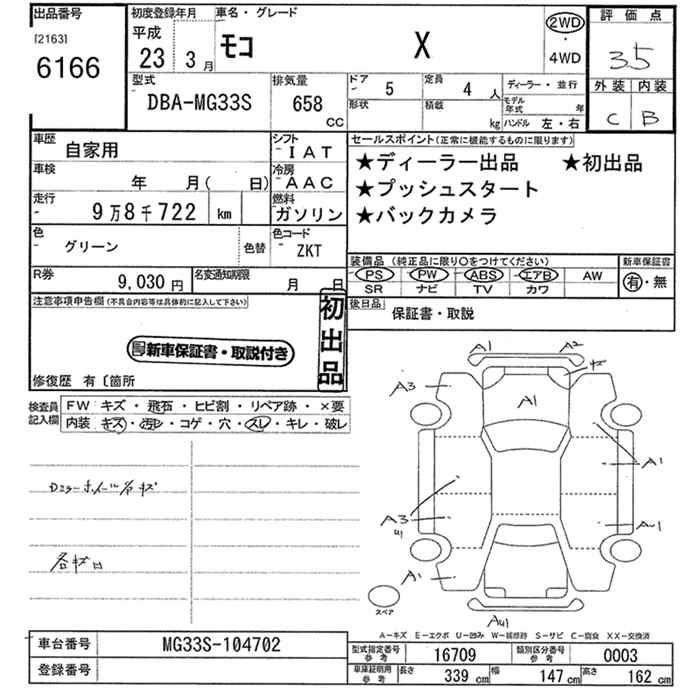 出品番号
[2163]
6166
初度登録年月
平成
23 3月
車名・グレード
モコ X
2WD
・
4WD
評価点
3.5
外装 内装
C B
型式
DBA-MG33S
排気量
658
CC
ドア
- 5
定員
4 人
ディーラー・並行
形状
積載
kg
モデル年式 年
ハンドル 左・右
車歴
自家用
シフト
- IAT
車検
年 月( 日)
冷房
- AAC
走行
- 9万8千722 km
燃料
ガソリン
色
グリーン
色替
色コード
- ZKT
R券
9,030円
名変通知期限
月 日
セールスポイント(正常に機能するものに限ります)
★ディーラー出品 ★初出品
★プッシュスタート
★バックカメラ
装備品(純正品に限り○をつけてください)
PS PW ABS エアB AW
SR ナビ TV カワ
新車保証書
有・無
後日品
保証書・取説
注意事項申告欄(不具合内容等は具体的に記入して下さい)
新車保証書・取説付き
初出品
修復歴 有〔箇所
検査員記入欄
FW キズ・飛石・ヒビ割・リペア跡・×要
内装 キズ・汚レ・コゲ・穴・スレ・キレ・破レ
A1 A2
A3
A1
A1
A3
A1
U1
A1
AU1
スペア
A-キズ E-エクボ U-凹み W-補修跡 S-サビ C-腐食 XX-交換済
車台番号 MG33S-104702
登録番号
型式指定番号 参考 16709
類別区分番号 参考 0003
車庫証明用 参考 長さ 339 cm 幅 147 cm 高さ 162 cm